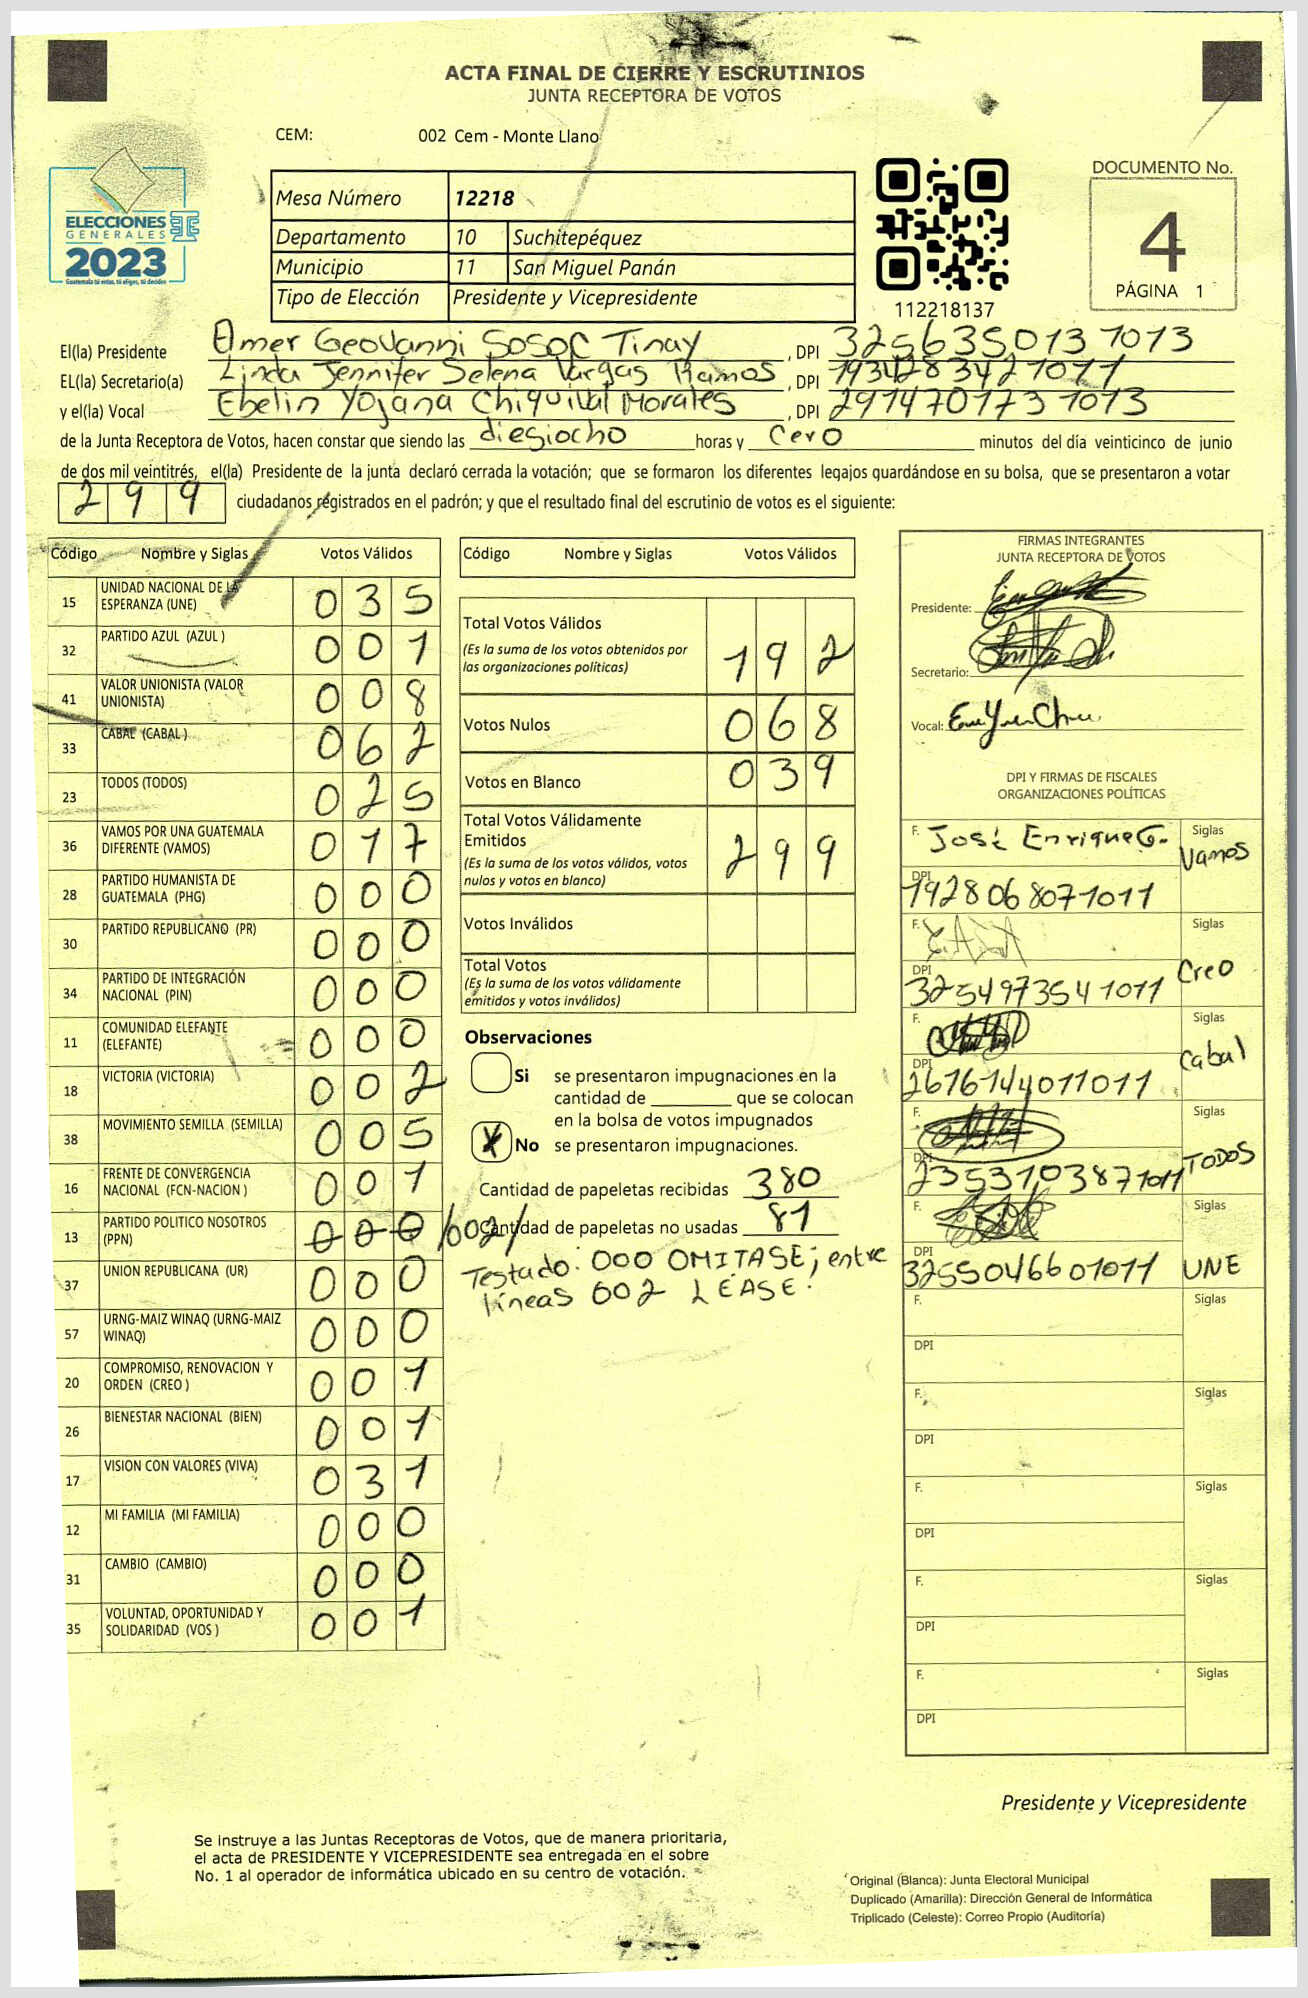 ACTA FINAL DE CIERRE Y ESCRUTINIOS
JUNTA RECEPTORA DE VOTOS
CEM: 002 Cem - Monte Llano
ELECCIONES
GENERALES
2023
Guatemala tú entas, tú eliges, tú decides
Mesa Número 12218
Departamento 10 Suchitepéquez
Municipio 11 San Miguel Panán
Tipo de Elección Presidente y Vicepresidente
112218137
DOCUMENTO No.
4
PÁGINA 1
El(la) Presidente Elmer Geovanni Sosoc Tinay, DPI 3256350131013
EL(la) Secretario(a) Linda Jennifer Selena Vargas Ramos, DPI 1934283421011
y el(la) Vocal Ebelin Yojana Chiquival Morales, DPI 2914701731013
de la Junta Receptora de Votos, hacen constar que siendo las diesiocho horas y cero minutos del día veinticinco de junio
de dos mil veintitrés, el(la) Presidente de la junta declaró cerrada la votación; que se formaron los diferentes legajos guardándose en su bolsa, que se presentaron a votar
299 ciudadanos registrados en el padrón; y que el resultado final del escrutinio de votos es el siguiente:
Código Nombre y Siglas Votos Válidos
15 UNIDAD NACIONAL DE LA ESPERANZA (UNE) 035
32 PARTIDO AZUL (AZUL ) 001
41 VALOR UNIONISTA (VALOR UNIONISTA) 008
33 CABAL (CABAL ) 062
23 TODOS (TODOS) 025
36 VAMOS POR UNA GUATEMALA DIFERENTE (VAMOS) 017
28 PARTIDO HUMANISTA DE GUATEMALA (PHG) 000
30 PARTIDO REPUBLICANO (PR) 000
34 PARTIDO DE INTEGRACIÓN NACIONAL (PIN) 000
11 COMUNIDAD ELEFANTE (ELEFANTE) 000
18 VICTORIA (VICTORIA) 002
38 MOVIMIENTO SEMILLA (SEMILLA) 005
16 FRENTE DE CONVERGENCIA NACIONAL (FCN-NACION ) 001
13 PARTIDO POLITICO NOSOTROS (PPN) 000 /002/
37 UNION REPUBLICANA (UR) 000
57 URNG-MAIZ WINAQ (URNG-MAIZ WINAQ) 000
20 COMPROMISO, RENOVACION Y ORDEN (CREO ) 001
26 BIENESTAR NACIONAL (BIEN) 001
17 VISION CON VALORES (VIVA) 031
12 MI FAMILIA (MI FAMILIA) 000
31 CAMBIO (CAMBIO) 000
35 VOLUNTAD, OPORTUNIDAD Y SOLIDARIDAD (VOS ) 001
Código Nombre y Siglas Votos Válidos
Total Votos Válidos 192
(Es la suma de los votos obtenidos por
las organizaciones políticas)
Votos Nulos 068
Votos en Blanco 039
Total Votos Válidamente
Emitidos 299
(Es la suma de los votos válidos, votos
nulos y votos en blanco)
Votos Inválidos
Total Votos
(Es la suma de los votos válidamente
emitidos y votos inválidos)
Observaciones
Si se presentaron impugnaciones en la
cantidad de ________ que se colocan
en la bolsa de votos impugnados
X No se presentaron impugnaciones.
Cantidad de papeletas recibidas 380
Cantidad de papeletas no usadas 81
Testado: 000 OMITASE; entre
líneas 002 LEASE.
FIRMAS INTEGRANTES
JUNTA RECEPTORA DE VOTOS
Presidente:
Secretario:
Vocal:
DPI Y FIRMAS DE FISCALES
ORGANIZACIONES POLÍTICAS
F. José Enrique G. Siglas Vamos
DPI 1928068071011
F. Siglas Creo
DPI 3254973541011
F. Siglas Cabal
DPI 2616144011011
F. Siglas TODOS
DPI 2353103871011
F. Siglas UNE
DPI 3255046601011
F. Siglas
DPI
F. Siglas
DPI
F. Siglas
DPI
F. Siglas
DPI
F. Siglas
DPI
Presidente y Vicepresidente
Se instruye a las Juntas Receptoras de Votos, que de manera prioritaria,
el acta de PRESIDENTE Y VICEPRESIDENTE sea entregada en el sobre
No. 1 al operador de informática ubicado en su centro de votación.
Original (Blanca): Junta Electoral Municipal
Duplicado (Amarilla): Dirección General de Informática
Triplicado (Celeste): Correo Propio (Auditoría)